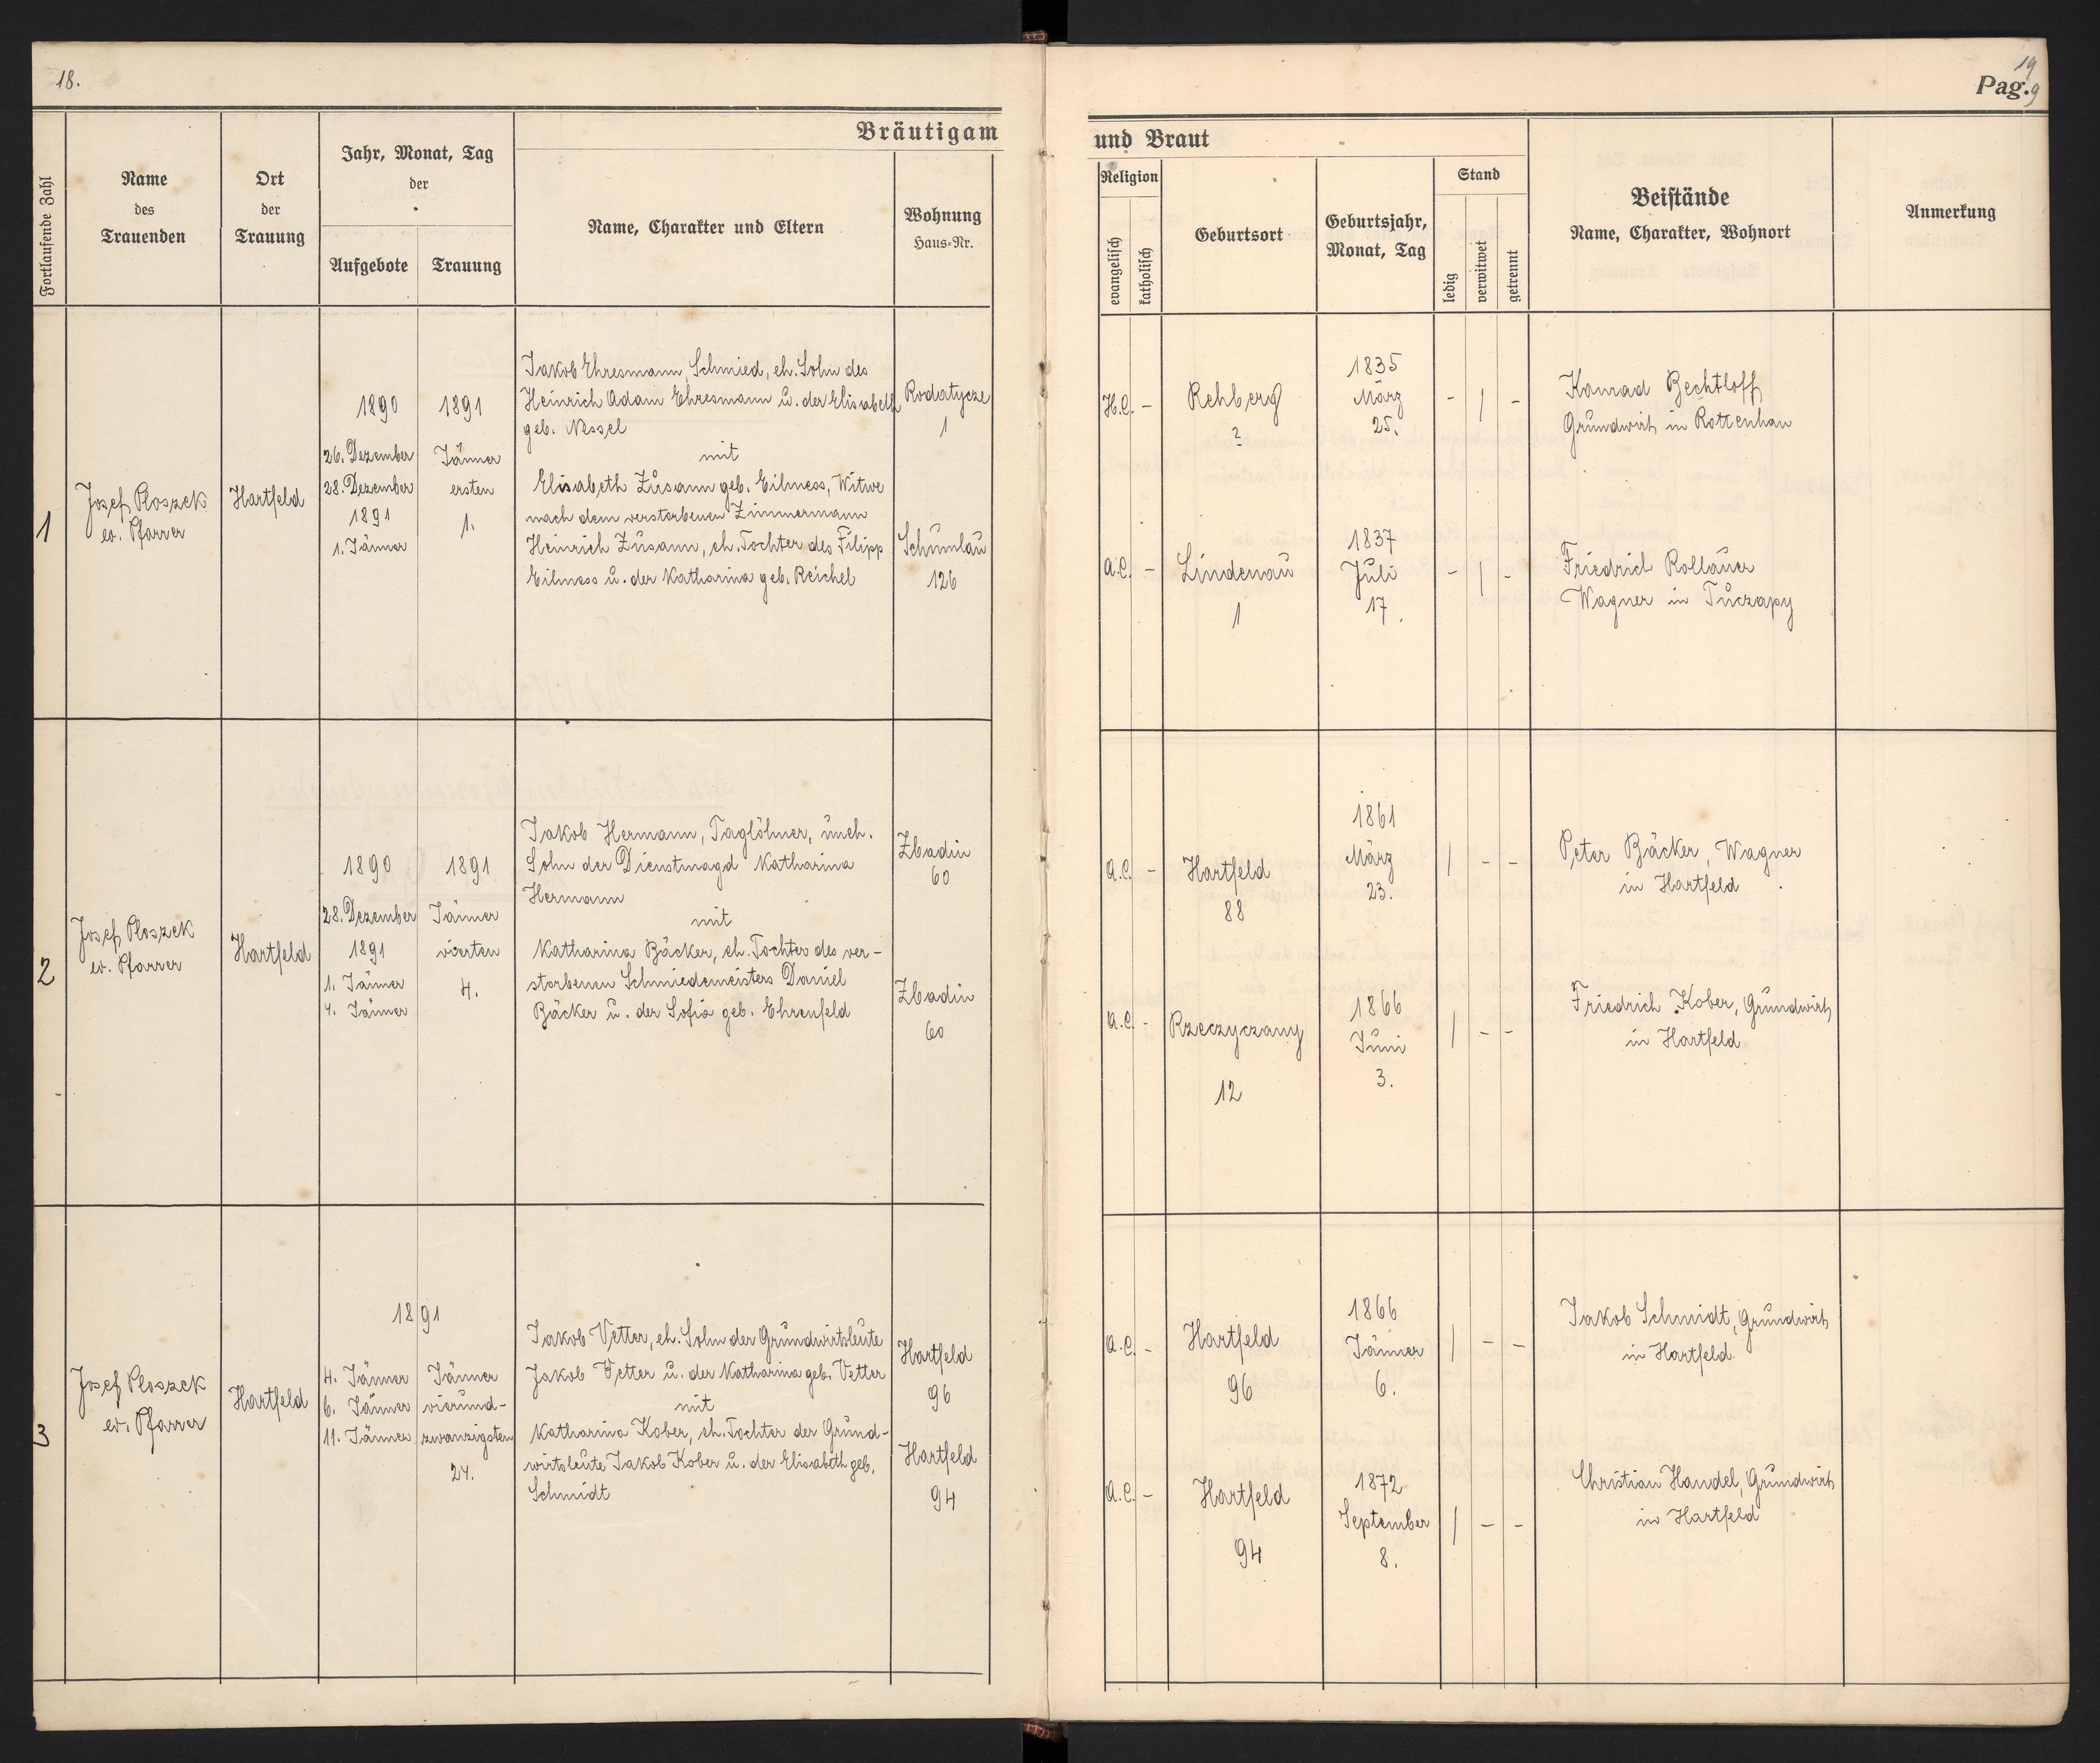 18.
19
Pag. 9
Bräutigam
und Braut
Fortlaufende Zahl
Name
des
Trauenden
Ort
der
Trauung
Jahr, Monat, Tag
der
Aufgebote
Trauung
Name, Charakter und Eltern
Wohnung
Haus=Nr.
Religion
evangelisch
katholisch
Geburtsort
Geburtsjahr,
Monat, Tag
Stand
ledig
verwitwet
getrennt
Beistände
Name, Charakter, Wohnort
Anmerkung
1
Josef Ploszek
ev. Pfarrer
Hartfeld
1890
26. Dezember
28. Dezember
1891
1. Jänner
1891
Jänner
ersten
1.
Jakob Ehresmann, Schmied, eh. Sohn des
Heinrich Adam Ehresmann u. der Elisabeth
geb. Nessel
mit
Elisabeth Zusann geb. Eilmess, Witwe
nach dem verstorbenen Zimmermann
Heinrich Zusann, eh. Tochter des Filipp
Eilmess u. der Katharina geb. Reichel
Rodatycze
1
Schumlau
126
H.C. –
Rehberg
?
1835
März
25.
– / –
Konrad Bechtloff
Grundwirt in Rottenhan
A.C. –
Lindenau
1
1837
Juli
17.
– / –
Friedrich Rollauer
Wagner in Tuczapy
2
Josef Ploszek
ev. Pfarrer
Hartfeld
1890
28. Dezember
1891
1. Jänner
4. Jänner
1891
Jänner
vierten
4.
Jakob Hermann, Taglöhner, uneh.
Sohn der Dienstmagd Katharina
Hermann
mit
Katharina Bäcker, eh. Tochter des ver–
storbenen Schmiedemeisters Daniel
Bäcker u. der Sofia geb. Ehrenfeld
Zbadin
60
Zbadin
60
A.C. –
Hartfeld
88
1861
März
23.
/ – –
Peter Bäcker, Wagner
in Hartfeld
A.C. –
Rzeczyczany
12
1866
Juni
3.
/ – –
Friedrich Kober, Grundwirt
in Hartfeld
3
Josef Ploszek
ev. Pfarrer
Hartfeld
1891
4. Jänner
6. Jänner
11. Jänner
Jänner
vierund–
zwanzigsten
24.
Jakob Vetter, eh. Sohn der Grundwirtsleute
Jakob Vetter u. der Katharina geb. Vetter
mit
Katharina Kober, eh. Tochter der Grund–
wirtsleute Jakob Kober u. der Elisabeth geb.
Schmidt
Hartfeld
96
Hartfeld
94
A.C. –
Hartfeld
96
1866
Jänner
6.
/ – –
Jakob Schmidt, Grundwirt
in Hartfeld.
A.C. –
Hartfeld
94
1872
September
8.
/ – –
Christian Handel, Grundwirt
in Hartfeld